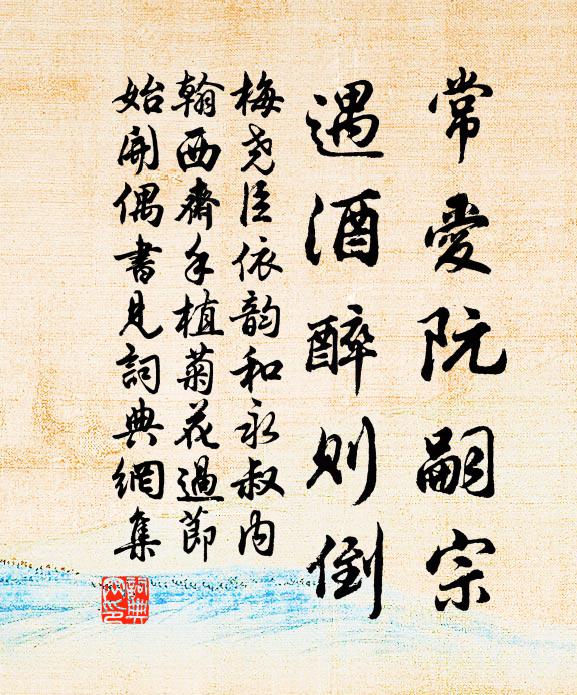 常愛阮嗣宗
遇酒醉则倒
梅尧臣依韵和永叔内
翰西齋手植菊花過節
始開偶書見詞典網集